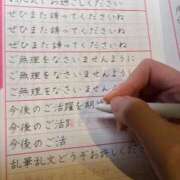 お許しください
ぜひまた誘ってくださいね
ぜひまた誘ってくださいね
ぜひまた誘ってくださいね
ご無理をなさいませんように
ご無理をなさいませんように
ご無理をなさいませんように
今後のご活躍を期
今後のご活
今後のご活
乱筆乱文どうぞお許しくださ